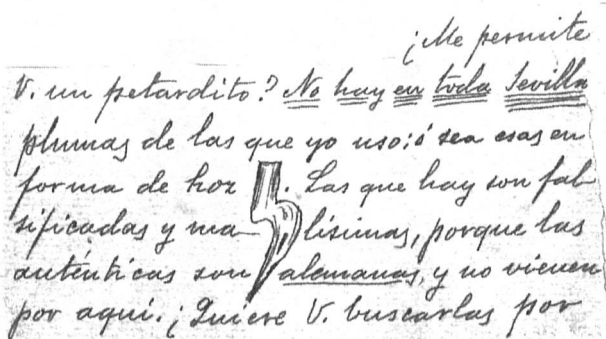 ¡Me permite
V. un petardito? No hay en toda Sevilla
plumas de las que yo uso: ó sea esas en
forma de hoz. Las que hay son fal-
sificadas y ma-lísimas, porque las
auténticas son alemanas, y no vienen
por aquí. ¡Quiere V. buscarlas por